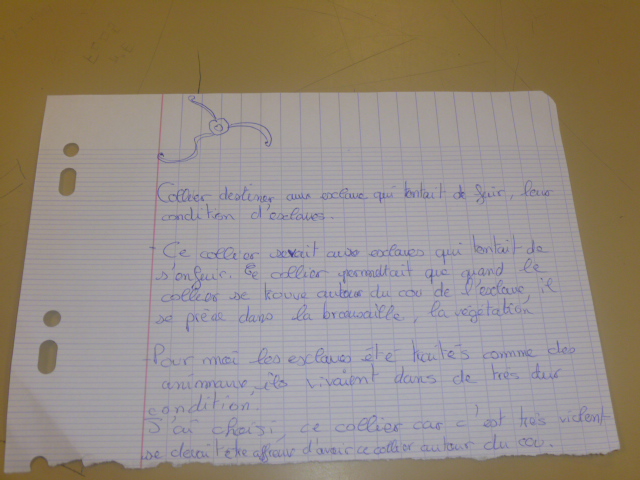 Collier destiner aux esclave qui tentait de fuir, leur
condition d'esclaves.
- Ce collier servait aux esclaves qui tentait de
s'enfuir. Ce collier permettait que quand le
collier se trouve autour du cou de l'esclave, il
se prène dans la broussaille, la végétation
Pour moi les esclaves été traités comme des
animaux, ils vivaient dans de très dur
condition.
J'ai choisi ce collier car c'est très violent
se devait être affreux d'avoir ce collier autour du cou.